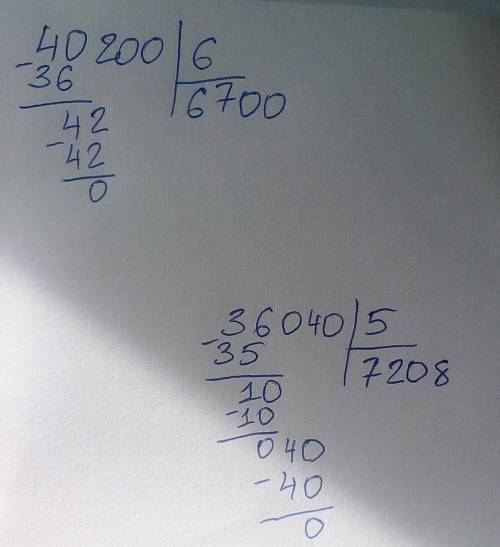 -40200 6
36 6700
42
-42
0
-36040 5
35 7208
10
-10
040
-40
0